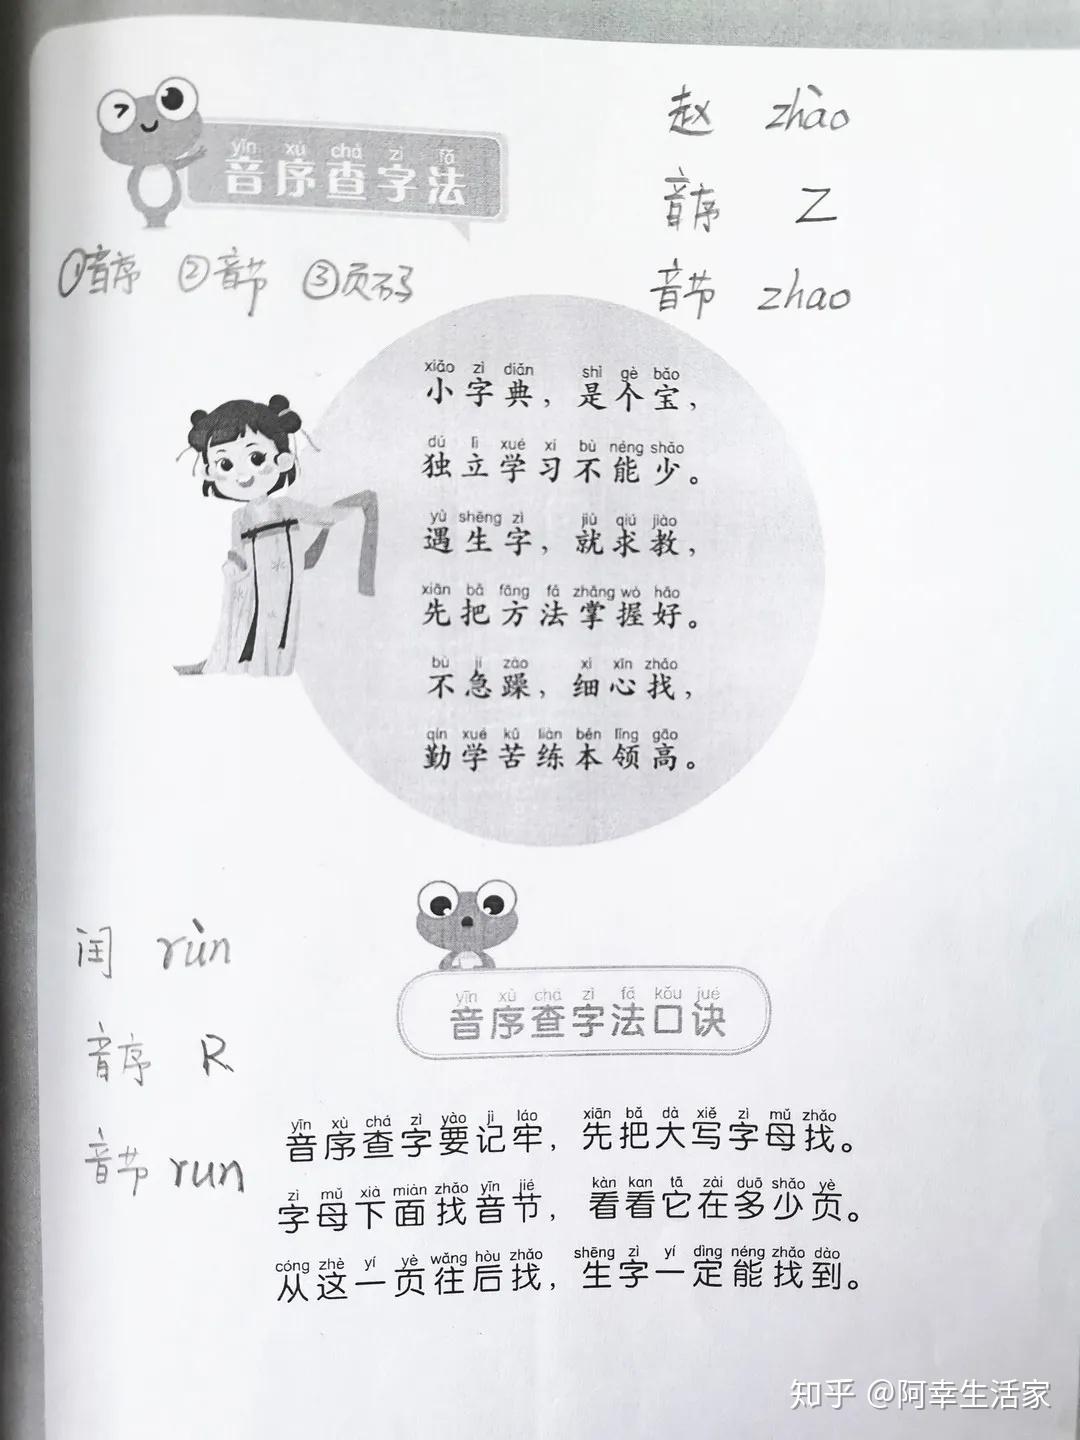 赵 zhào
yīn xù chá zì fǎ
音序查字法
音序 Z
①音序 ②音节 ③页码
音节 zhao
xiǎo zì diǎn shì gè bǎo
小字典，是个宝，
dú lì xué xí bù néng shǎo
独立学习不能少。
yù shēng zì jiù qiú jiào
遇生字，就求教，
xiān bǎ fāng fǎ zhǎng wò hǎo
先把方法掌握好。
bù jí zào xì xīn zhǎo
不急躁，细心找，
qín xué kǔ liàn běn lǐng gāo
勤学苦练本领高。
闰 rùn
音序 R
音节 run
yīn xù chá zì fǎ kǒu jué
音序查字法口诀
yīn xù chá zì yào jì láo xiān bǎ dà xiě zì mǔ zhǎo
音序查字要记牢，先把大写字母找。
zì mǔ xià miàn zhǎo yīn jié kàn kan tā zài duō shǎo yè
字母下面找音节，看看它在多少页。
cóng zhè yí yè wǎng hòu zhǎo shēng zì yí dìng néng zhǎo dào
从这一页往后找，生字一定能找到。
知乎 @阿幸生活家